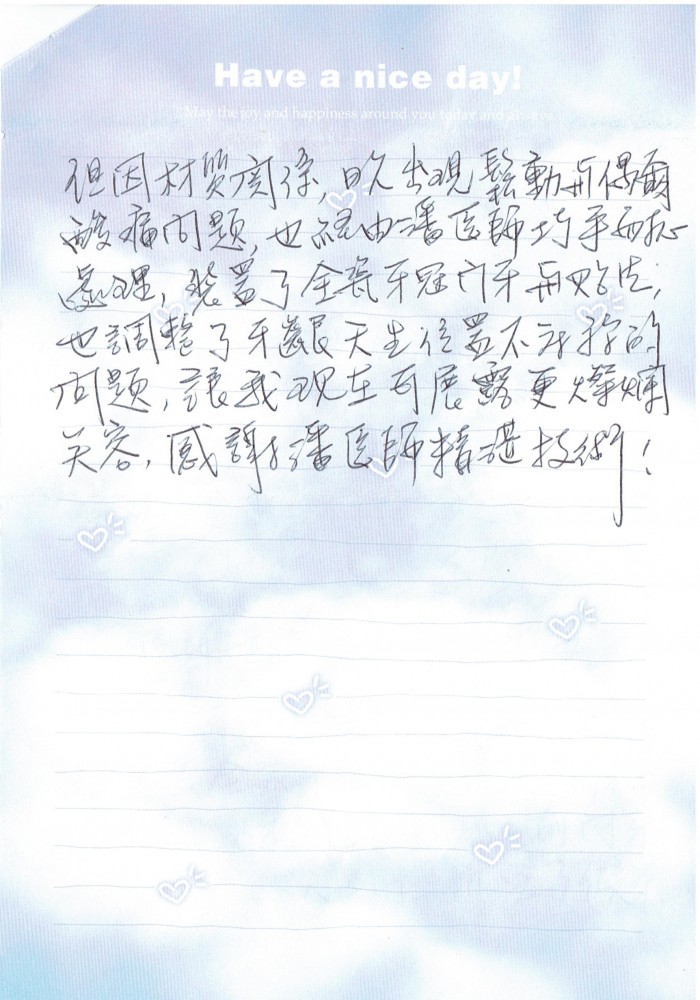 Have a nice day!
May the joy and happiness around you today and always
但因材質關係,日久出現鬆動與偶爾
酸痛問題,也經由潘医師巧手細心
處理,裝置了全瓷牙冠門牙與貼片,
也調整了牙齦天生位置不對稱的
問題,讓我現在可展露更燦爛
笑容,感謝潘医師精湛技術!